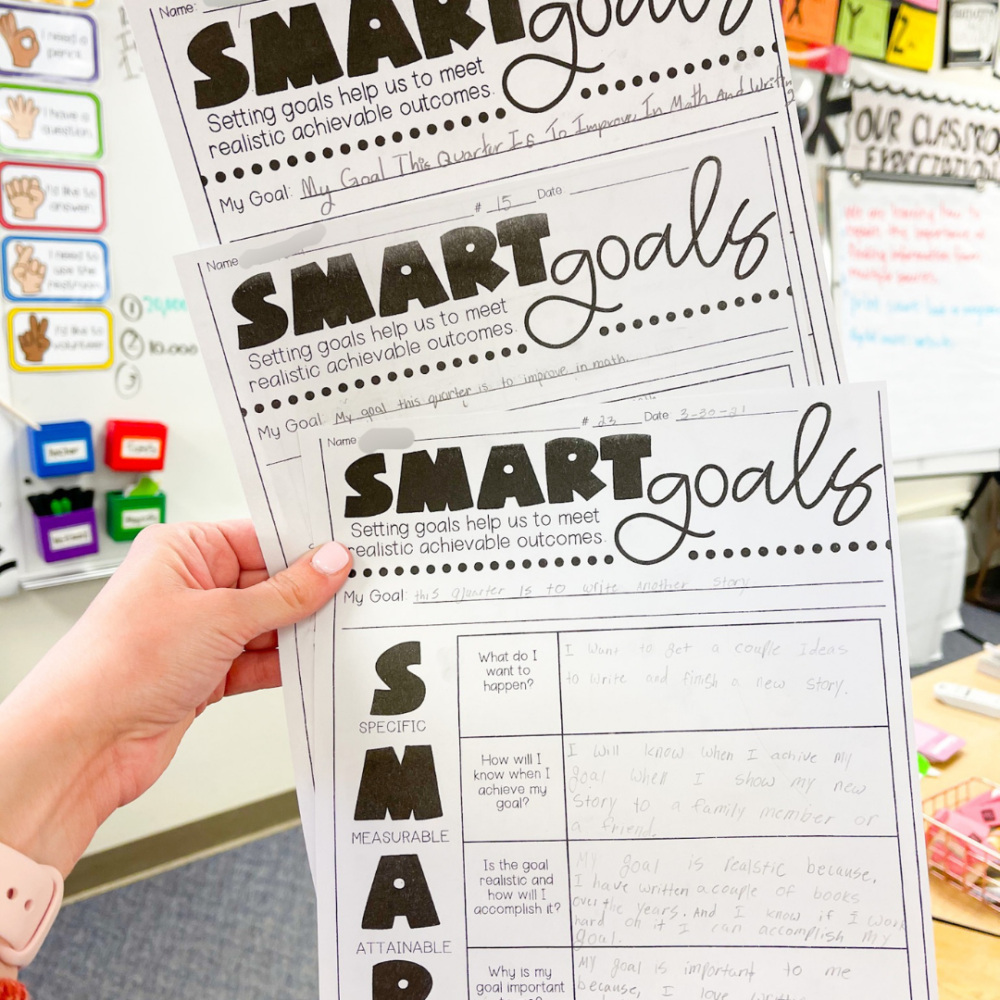 I need a pencil.
I have a question.
I'd like to answer.
I need to use the restroom.
I'd like to volunteer.
① 70,000
② 10,000
③
Y
Z
OUR CLASSROOM
EXPECTATIONS
Name:
SMART goals
Setting goals help us to meet
realistic achievable outcomes.
My Goal: My Goal This Quarter Is To Improve In Math And Writing
Name # 15 Date
SMART goals
Setting goals help us to meet
realistic achievable outcomes.
My Goal: My goal this quarter is to improve in math.
Name # 23 Date 3-30-21
SMART goals
Setting goals help us to meet
realistic achievable outcomes.
My Goal: this quarter is to write another story
S
SPECIFIC
What do I
want to
happen?
I want to get a couple Ideas
to write and finish a new story.
M
MEASURABLE
How will I
know when I
achieve my
goal?
I will know when I achive my
goal when I show my new
story to a family member or
a friend.
A
ATTAINABLE
Is the goal
realistic and
how will I
accomplish it?
My goal is realstic because,
I have written a couple of books
over the years. And I know if I work
hard on it I can accomplish my
goal.
R
Why is my
goal important
My goal is important to me
because, I love